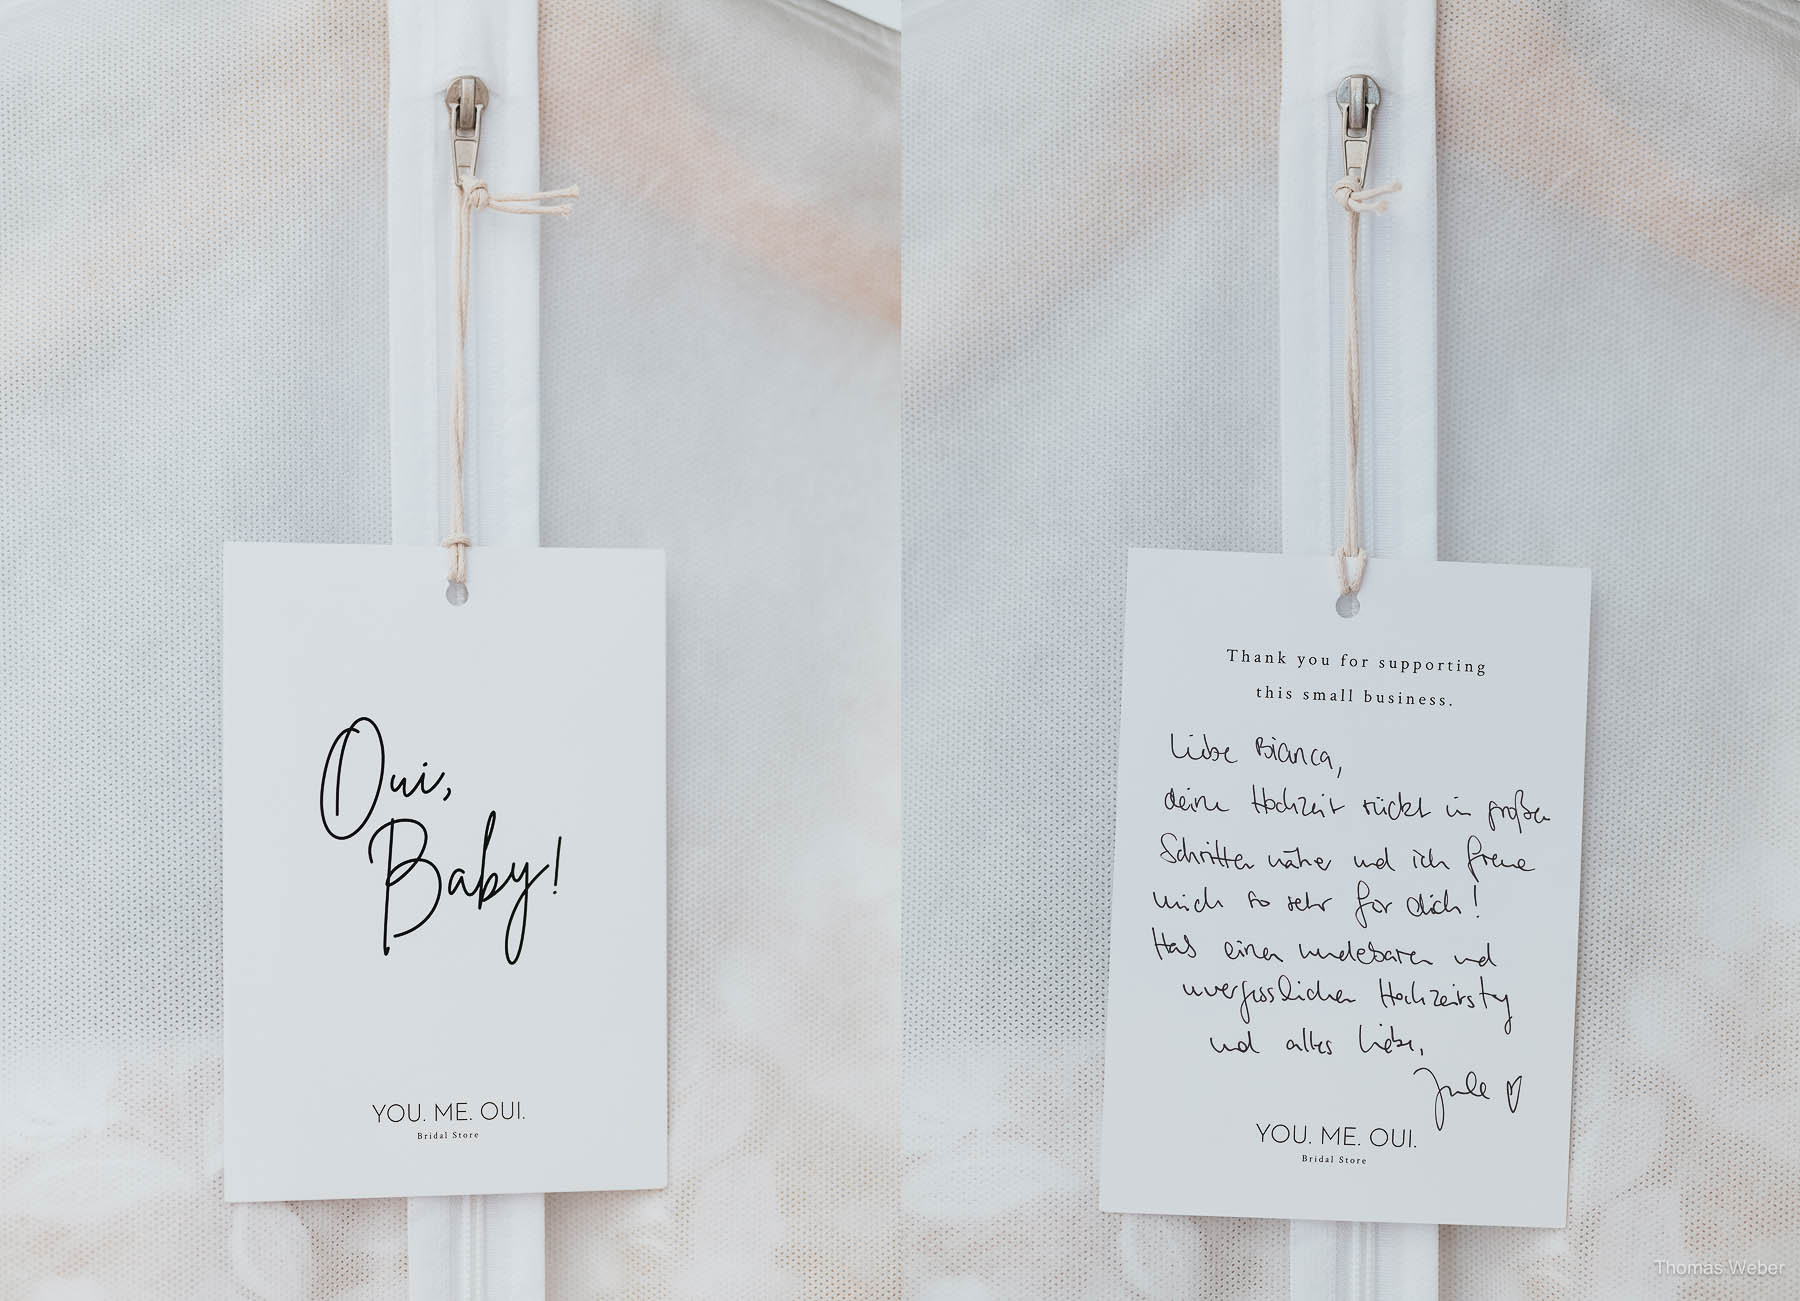 Oui,
Baby!
YOU. ME. OUI.
Bridal Store
Thank you for supporting
this small business.
Liebe Bianca,
deine Hochzeit rückt in großen
Schritten näher und ich freue
mich so sehr für dich!
Hab einen wundebaren und
unvergesslichen Hochzeitstag
und alles Liebe,
Jule ♡
YOU. ME. OUI.
Bridal Store
Thomas Weber